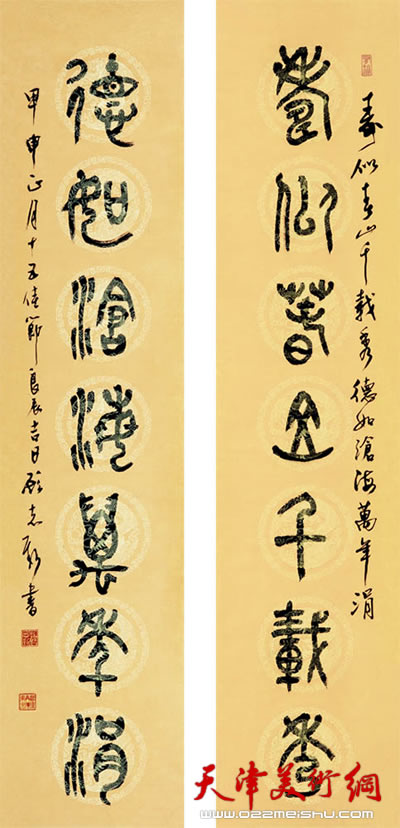 壽似春山千載秀德如滄海萬年涓
壽似春山千載秀
德如滄海萬年涓
甲申正月十五佳節良辰吉日顧志新書
天津美術網
www.022meishu.com